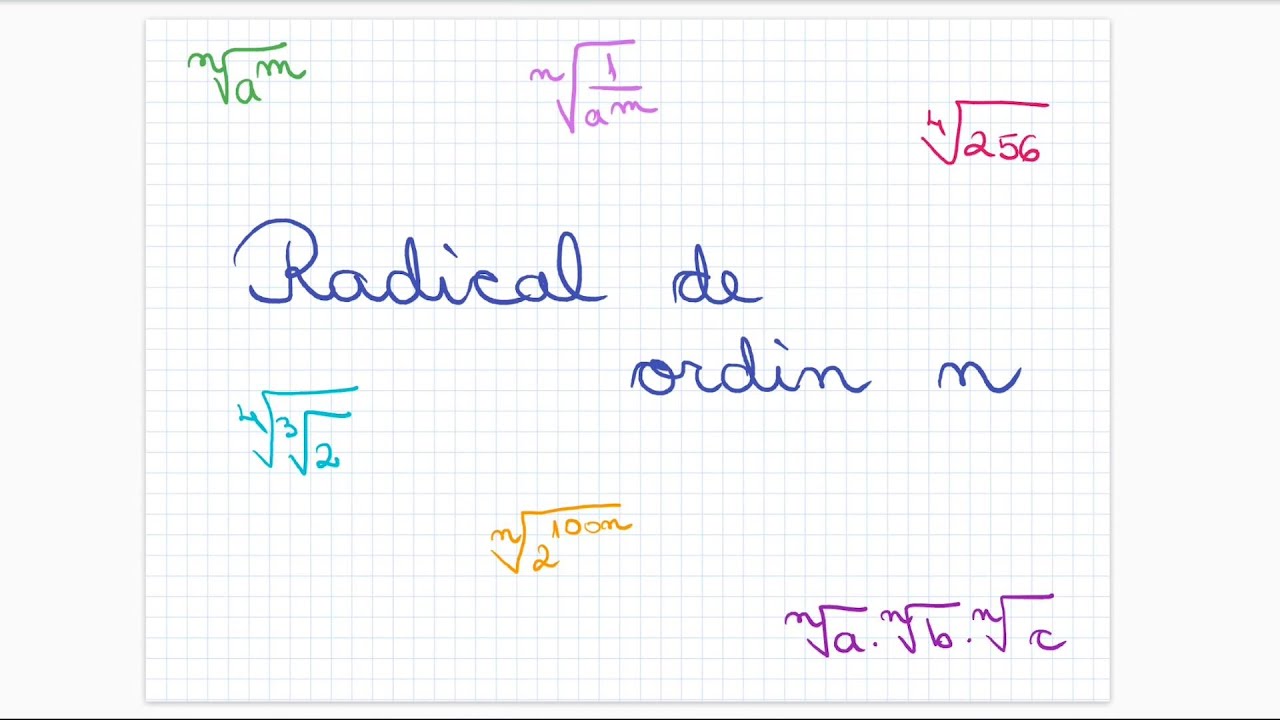 ⁿ√aᵐ
ⁿ√(1/aᵐ)
⁴√256
Radical de
ordin n
⁴√³√2
ⁿ√2¹⁰⁰ⁿ
ⁿ√a · ⁿ√b · ⁿ√c